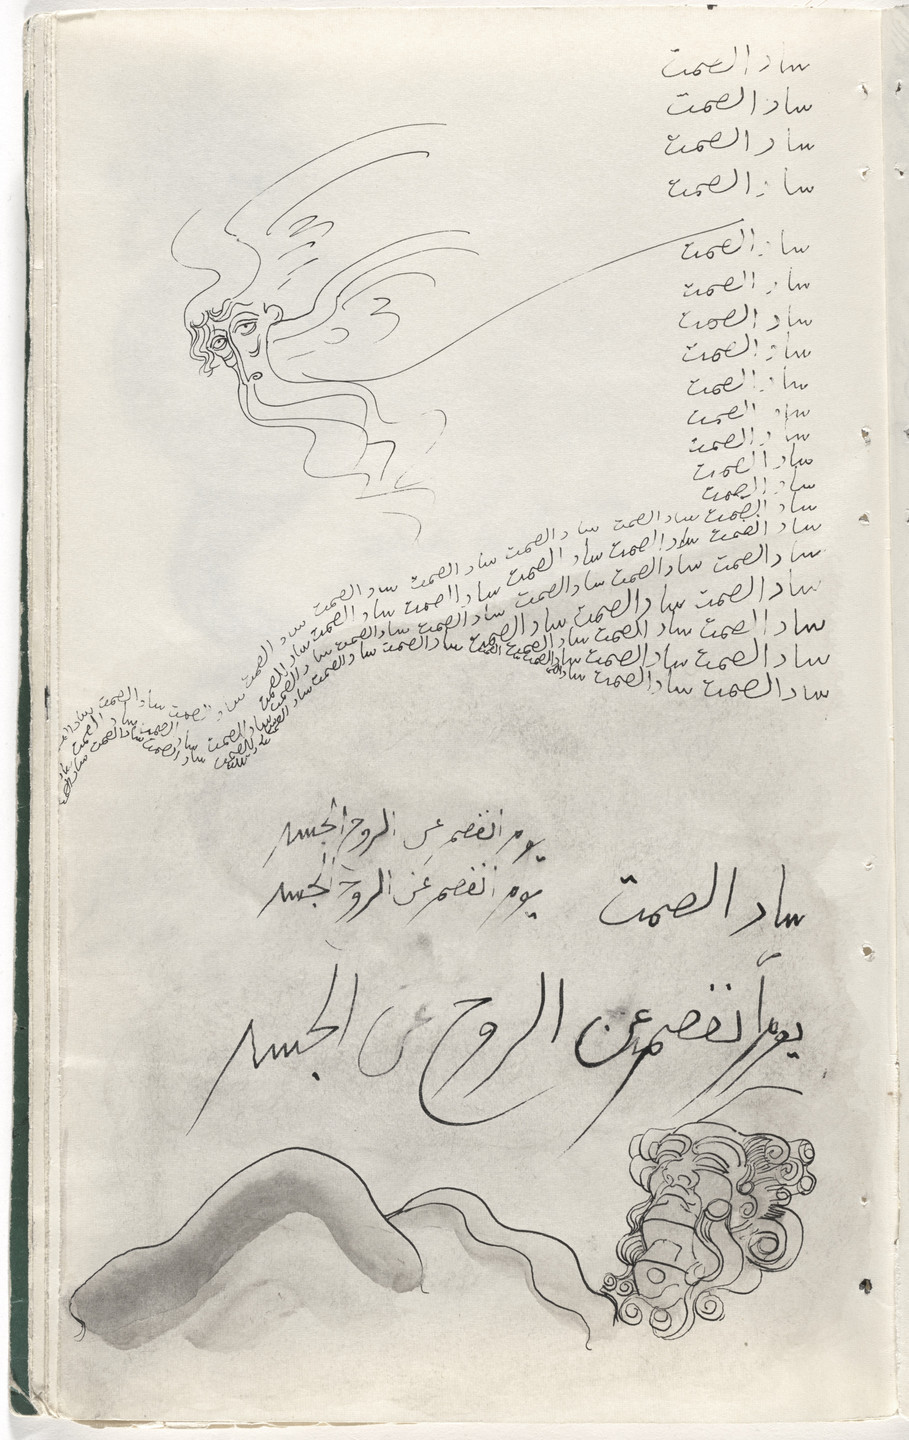 ساد الصمت
ساد الصمت
ساد الصمت
ساد الصمت
ساد الصمت
ساد الصمت
ساد الصمت
ساد الصمت
ساد الصمت
ساد الصمت
ساد الصمت
ساد الصمت
ساد الصمت
ساد الصمت ساد الصمت ساد الصمت ساد الصمت ساد الصمت ساد الصمت
ساد الصمت ساد الصمت ساد الصمت ساد الصمت ساد الصمت
ساد الصمت ساد الصمت ساد الصمت ساد الصمت ساد الصمت
ساد الصمت ساد الصمت ساد الصمت
ساد الصمت ساد الصمت ساد الصمت
ساد الصمت ساد الصمت ساد الصمت
ساد الصمت ساد الصمت ساد الصمت
يوم انفصم عن الروح الجسد
يوم انفصم عن الروح الجسد
ساد الصمت
يوم أنفصم عن الروح عن الجسد